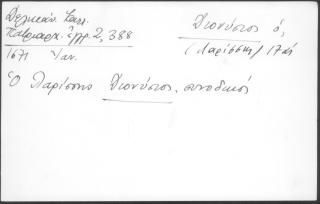 Δελικάν. Καλ.
Πατριαρχ. ἔγγρ. 2, 388
1671 Ἰαν.
Διονύσιος ὁ,
(Λαρίσσης) 17ος
Ὁ Λαρίσσης Διονύσιος, συνοδικός